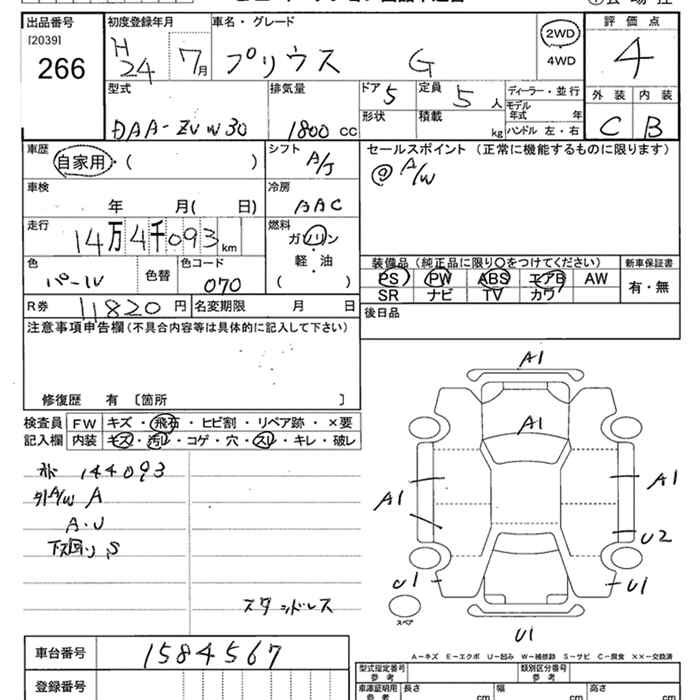 出品番号
[2039]
266
初度登録年月
H
24
7月
車名・グレード
プリウス G
2WD
4WD
評価点
4
外装 内装
C B
型式
DAA-ZVW30
排気量
1800 cc
ドア 5
形状
定員 5 人
積載 kg
ディーラー・並行
モデル年式 年
ハンドル 左・右
車歴
自家用・( )
シフト
A/J
セールスポイント (正常に機能するものに限ります)
@ A/W
車検
年 月( 日)
冷房
AAC
走行
14万4千093 km
燃料
ガソリン
軽・油
( )
色
パール
色替
色コード
070
装備品 (純正品に限り○をつけてください)
PS PW ABS エアB AW
SR ナビ TV カワ
新車保証書
有・無
R券 11820 円
名変期限 月 日
後日品
注意事項申告欄(不具合内容等は具体的に記入して下さい)
修復歴 有 〔箇所 〕
検査員
記入欄
FW キズ・飛石・ヒビ割・リペア跡・×要
内装 キズ・汚レ・コゲ・穴・スレ・キレ・破レ
144093
外A/W A
A・U
下廻り S
スタッドレス
A1
A1
A1
A1
U2
U1
U1
U1
スペア
A-キズ E-エクボ U-凹み W-補修跡 S-サビ C-腐食 ××-交換済
車台番号 1584567
登録番号
型式指定番号
参考
類別区分番号
参考
車庫証明用
参考
長さ cm
幅 cm
高さ cm